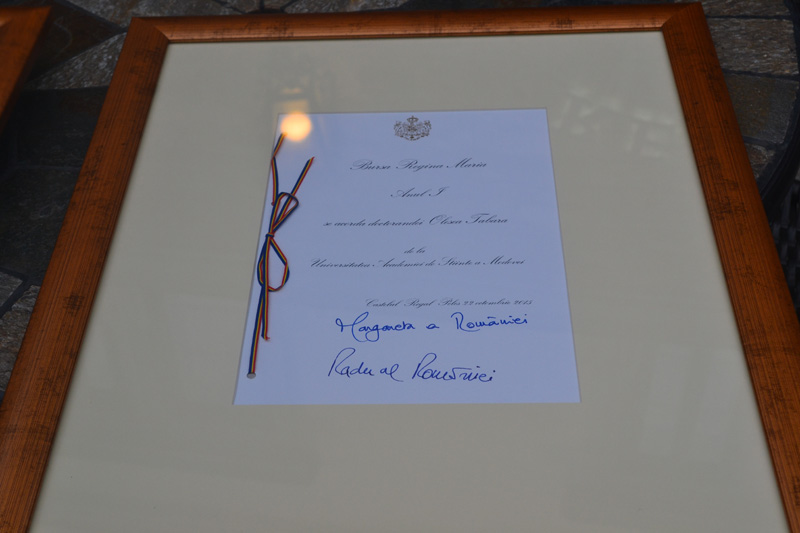 Bursa Regina Maria
Anul I
se acordă doctorandei Olesea Tabara
de la
Universitatea Academiei de Științe a Moldovei
Castelul Regal Peleș 22 octombrie 2015
Margareta a României
Radu al României